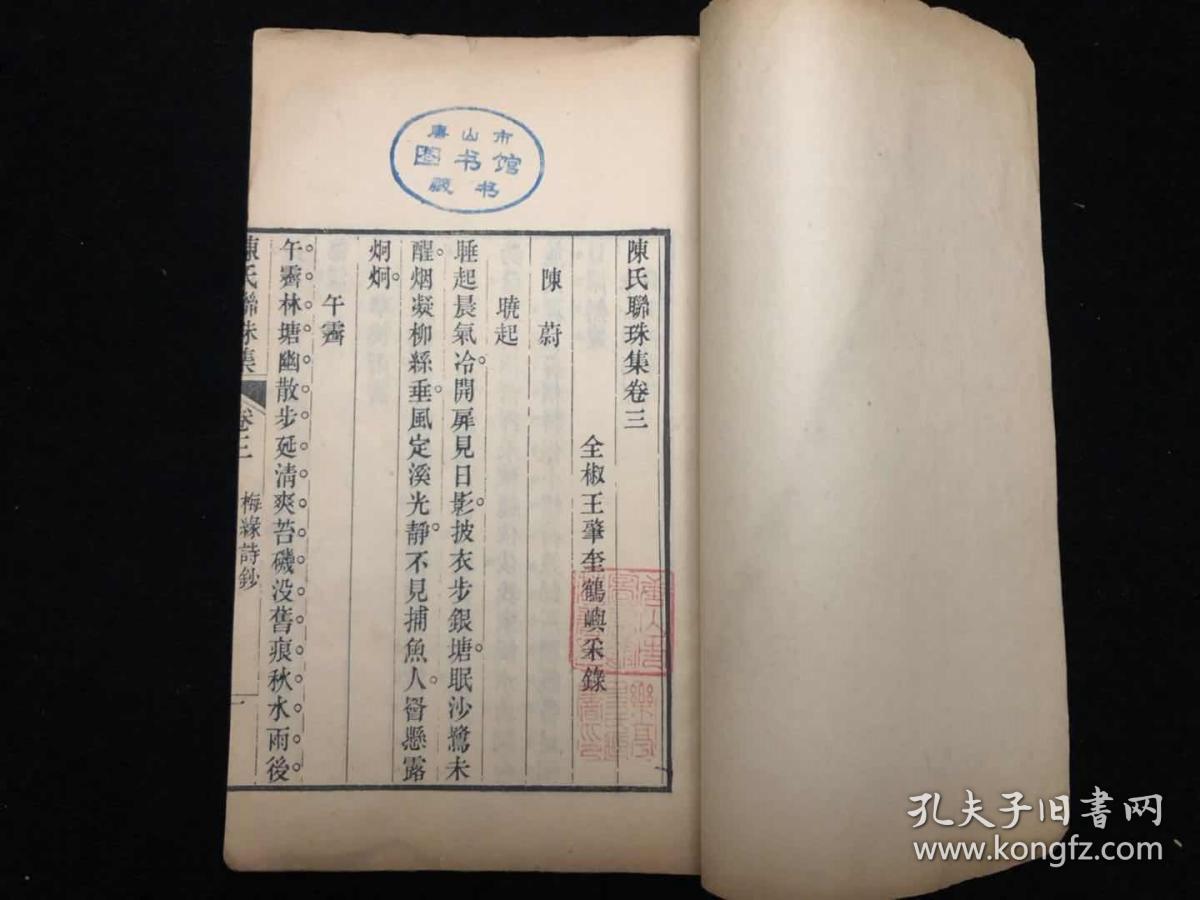 唐山市
图书馆
藏书
陳氏聯珠集卷三
全椒王肇奎鶴嶼采錄
陳蔚
曉起
睡起晨氣冷。開扉見日影。披衣步銀塘。眠沙鷺未
醒。烟凝柳緜垂。風定溪光靜。不見捕魚人。罾懸露
炯炯。
午霽
午霽林塘幽。散步延清爽。苔磯没舊痕。秋水雨後。
陳氏聯珠集
卷三
梅緣詩鈔
一
孔夫子旧书网
www.kongfz.com